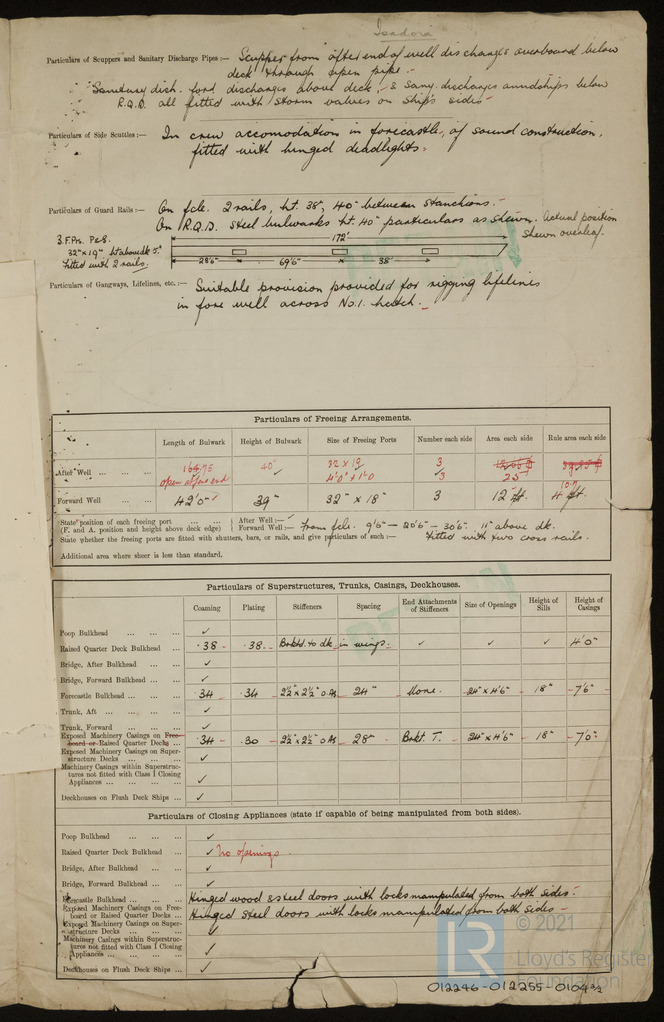 Isadora
Particulars of Scuppers and Sanitary Discharge Pipes:— Scupper from after end of well discharges overboard below
deck through open pipe.
Sanitary disch. ford discharges above deck, & Sany. discharges amidships below
R.Q.D. all fitted with storm valves on ship's sides
Particulars of Side Scuttles:— In crew accomodation in forecastle, of sound construction,
fitted with hinged deadlights.
Particulars of Guard Rails:— On fcle. 2 rails, ht. 38", 40" between stanchions.
On R.Q.D. steel bulwarks ht. 40" particulars as shewn. Actual position
shewn overleaf.
3. F. Prs. P & S.
32" x 19" ht above dk 5"
fitted with 2 rails.
172'
28'6" 69'6" 38'
Particulars of Gangways, Lifelines, etc.:— Suitable provision provided for rigging lifelines
in fore well across No. 1. hatch.
Particulars of Freeing Arrangements.
Length of Bulwark Height of Bulwark Size of Freeing Ports Number each side Area each side Rule area each side
After Well 40" 32 x 19 3
open at fore end 4'0" x 1'0 3 25
Forward Well 42'0" ✓ 39" 32" x 18" 3 12 ft. 10.7 ft.
State position of each freeing port After Well:—
(F. and A. position and height above deck edge) Forward Well:— From fcle. 9'6" — 20'6" — 30'6". 11" above dk.
State whether the freeing ports are fitted with shutters, bars, or rails, and give particulars of such:— Fitted with two cross rails.
Additional area where sheer is less than standard.
Particulars of Superstructures, Trunks, Casings, Deckhouses.
Coaming Plating Stiffeners Spacing End Attachments of Stiffeners Size of Openings Height of Sills Height of Casings
Poop Bulkhead ✓
Raised Quarter Deck Bulkhead .38 .38 Brktd. to dk in wings ✓ ✓ ✓ 4'0"
Bridge, After Bulkhead ✓
Bridge, Forward Bulkhead ✓
Forecastle Bulkhead .34 .34 2½" x 2½" o As 24" None. 24" x 4'6" 18" 7'6"
Trunk, Aft ✓
Trunk, Forward ✓
Exposed Machinery Casings on Free-
board or Raised Quarter Decks .34 .30 2½" x 2½" o As 28" Brkt. T. 24" x 4'6" 18" 7'0"
Exposed Machinery Casings on Super-
structure Decks ✓
Machinery Casings within Superstruc-
tures not fitted with Class I Closing
Appliances ✓
Deckhouses on Flush Deck Ships ✓
Particulars of Closing Appliances (state if capable of being manipulated from both sides).
Poop Bulkhead ✓
Raised Quarter Deck Bulkhead ✓ No openings.
Bridge, After Bulkhead ✓
Bridge, Forward Bulkhead ✓
Forecastle Bulkhead Hinged wood & steel doors with locks manipulated from both sides
Exposed Machinery Casings on Free-
board or Raised Quarter Decks Hinged steel doors with locks manipulated from both sides
Exposed Machinery Casings on Super-
structure Decks ✓
Machinery Casings within Superstruc-
tures not fitted with Class I Closing
Appliances ✓
Deckhouses on Flush Deck Ships ✓
© 2021
LR
Lloyd's Register
Foundation
012246-012255-0104 2/2